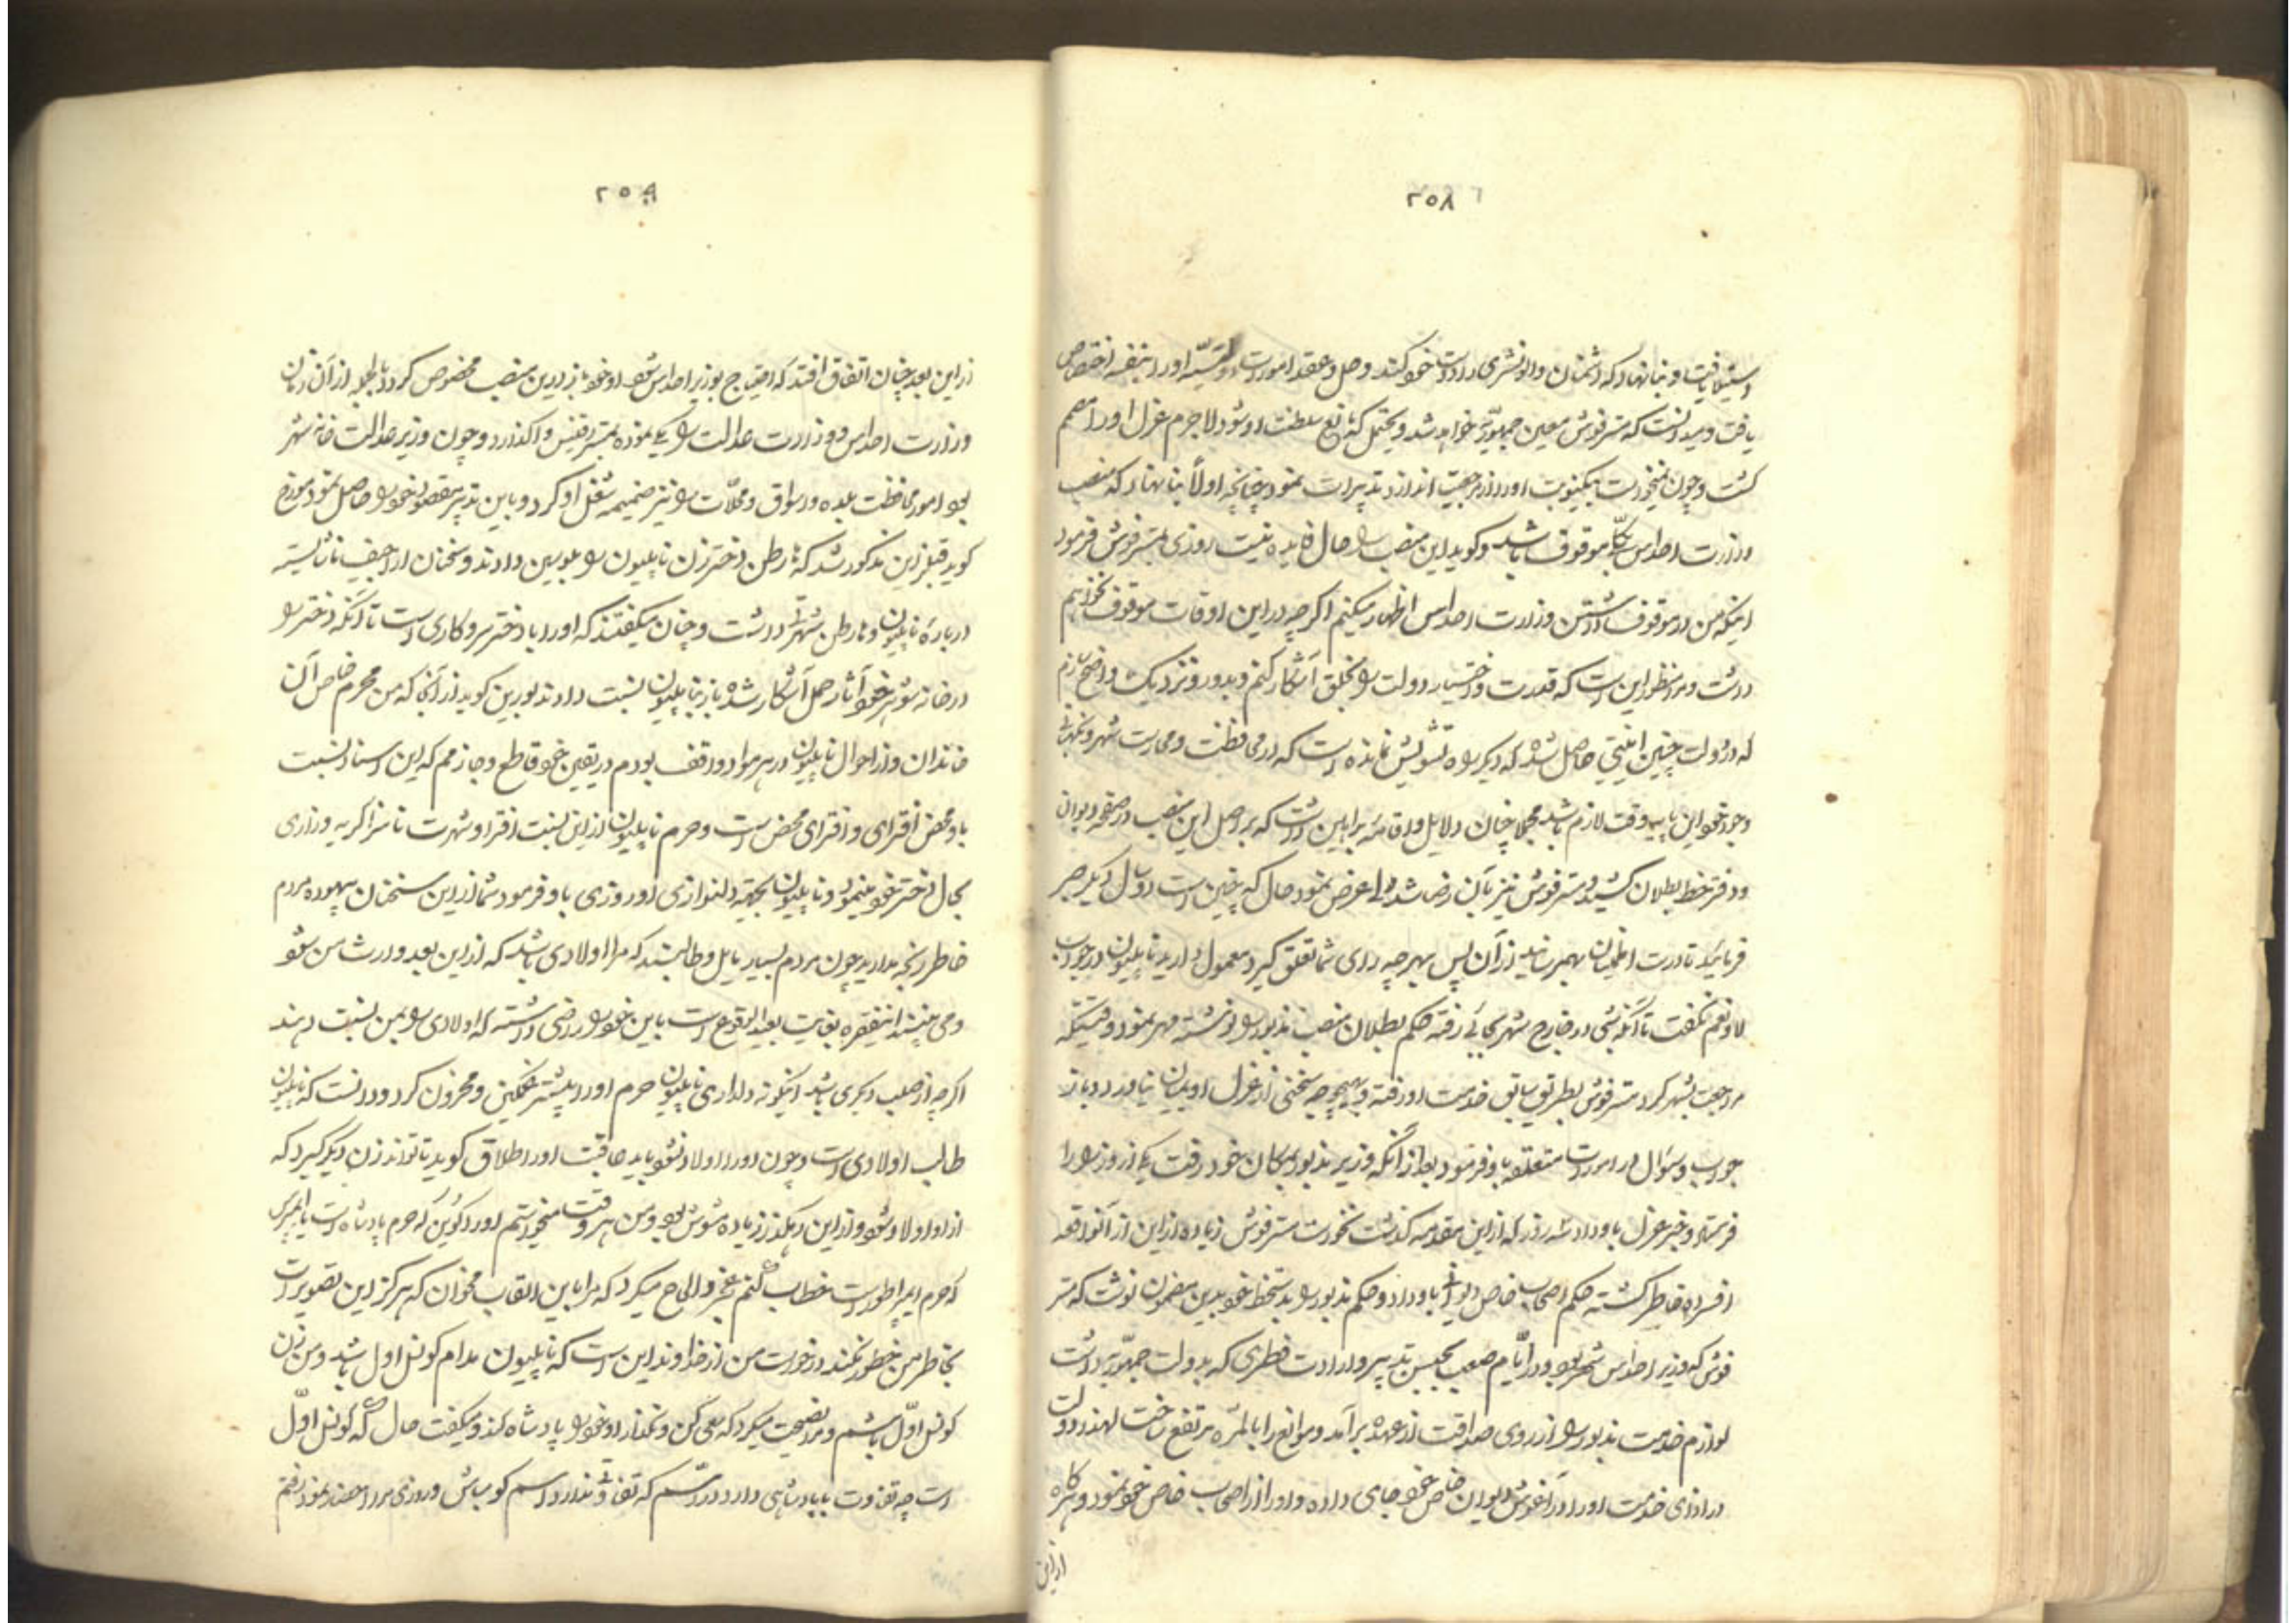 ۲۵۸
استیلا یافت و بنا نهاد که دشمنان و دانشوری را دوست خود کند و حل و عقد امورات را بنفسه اختصاص
یافت و میدانست که مسترفوش معین جمهوریه خواهد شد و یحتمل که مانع سلطنت او شود لاجرم عزل او را مصمم
کشت و چون میخواست بیکبارکی او را از مرحمت اندازد تدبیرات نمود چنانچه اولا بنا نهاد که منصب
وزارت احداس بکلی موقوف باشد و کوید این منصب را حال فایده نیست روزی بمسترفوش فرمود
اینکه من در موقوف داشتن وزارت احداس اظهار میکنم اکرچه در این اوقات موقوف نخواهم
داشت و مراد منظور این است که قدرت و اختیار دولت را بخلق آشکار کنم و بدور و نزدیک واضح سازم
که در دولت چنین امنیتی حاصل شده که دیکر راه تشویش نمانده است که در محافظت و حراست شهر و نکهبانی
وجود خود این پایه وقت لازم باشد مجملا چنان دلایل و اقامه براهین داشت که بر اصل این منصب در صفحه دیوان
و دفتر خط بطلان کشید و مسترفوش نیز بآن رضا شد ولی عرض نمود حال که چنین است دو سال دیکر صبر
فرمائید تا درست اطمینان بهمرسانید از آن پس بهرچه رای شما تعلق کیرد معمول دارید ناپلیون در جواب
لا و نعم نکفت تا آنکه شبی در خارج شهر بجائی رفته حکم بطلان منصب مذبور را نوشته مهر نمود و قتیکه
مراجعت بشهر کرد مسترفوش بطریق سابق خدمت او رفته و بهیچ وجه سخنی از عزل او بمیان نیاورد و باز
جواب و سئوال در امورات متعلقه باو فرمود بعد از آنکه وزیر مذبور بمکان خود رفت یکی از وزرا را
فرستاد و خبر عزل باو داد سه روز که از این مقدمه کذشت نخواست مسترفوش زیاده از این از آنواقعه
افسرده خاطر کشته حکم اصحاب خاص دیوان باو داد و حکم مذبور را بدستخط خود بدین مضمون نوشت که مستر
فوش که وزیر احداس شهر بود در ایام صعب بحسن تدبیر و ارادت فطری که بدولت جمهوریه داشت
لوازم خدمت مذبور را از روی صداقت از عهده برآمد و موانع را بالمره مرتفع ساخت لهذا دولت
در ازای خدمت او را در آغوش دیوان خاص خود جای داده و او را از اصحاب خاص خود نمود و هرکاه
از این
۲۵۹
از این بعد چنان اتفاق افتد که احتیاج بوزیر احداس شود او خود باز در این منصب مخصوص کردد بالجمله از آن زمان
وزارت احداس و وزارت عدالت را یکی نموده بمستر واکذارد و چون وزیر عدالت خانه شهر
بود امور محافظت بلده و اسواق و محلات را نیز ضمیمه شغل او کرد و باین تدبیر مقصود خود را حاصل نمود مورخ
کوید قبل از این مذکور شد که هارطن دختر زن ناپلیون را بلویس دادند و سخنان اراجیف ناشایسته
درباره ناپلیون و هارطن شهرتی داشت و چنان میکفتند که او را با دختر سر و کاری است تا آنکه دختر را
در خانه شوهر خود آثار حمل آشکار شده باز بناپلیون نسبت دادند بورین کوید از آنجا که من محرم خاص آن
خاندان و از احوال ناپلیون در هر مواد واقف بودم در یقین خود قاطع و جازمم که این اسناد نسبت
باو محض افترای و افترای محض است و حرم ناپلیون از این نسبت افترا و شهرت ناسزا کریه و زاری
بحال دختر خود مینمود و ناپلیون بجهته دلنوازی او روزی باو فرمود شما از این سخنان بیهوده مردم
خاطر رنجه مدارید چون مردم بسیار مایل و طالبند که مرا اولادی باشد که از این بعد وارث من شود
و می بینند اینفقره بغایت بعید الوقوع است باین خود را راضی داشته که اولادی را بمن نسبت دهند
اکرچه از صلب دیکری باشد اینکونه دلداری ناپلیون حرم او را بیشتر غمکین و محزون کرد و دانست که ناپلیون
طالب اولادی است و چون او را اولاد نشود باید عاقبت او را طلاق کوید تا تواند زن دیکر کیرد که
از او اولاد شود و از این رهکذر زیاده مشوش بود و من هر وقت میخواستم او را کوین که حرم پادشاه است یا ایمپرس
که حرم ایمپراطور است خطاب کنم عجز و الحاح میکرد که مرا باین القاب مخوان که هرکز این تصویر است
بخاطر من خطور نکند درخواست من از خداوند این است که ناپلیون مدام کونسل اول باشد و من زن
کونسل اول باشم و مرا نصیحت میکرد که سعی کن و نکذار او خود را پادشاه کند و میکفت حال که کونسل اول
است چه تفاوت با پادشاهی دارد در اسم که تفاوتی ندارد اسم کو مباش و روزی مرا احضار نمود رفتم